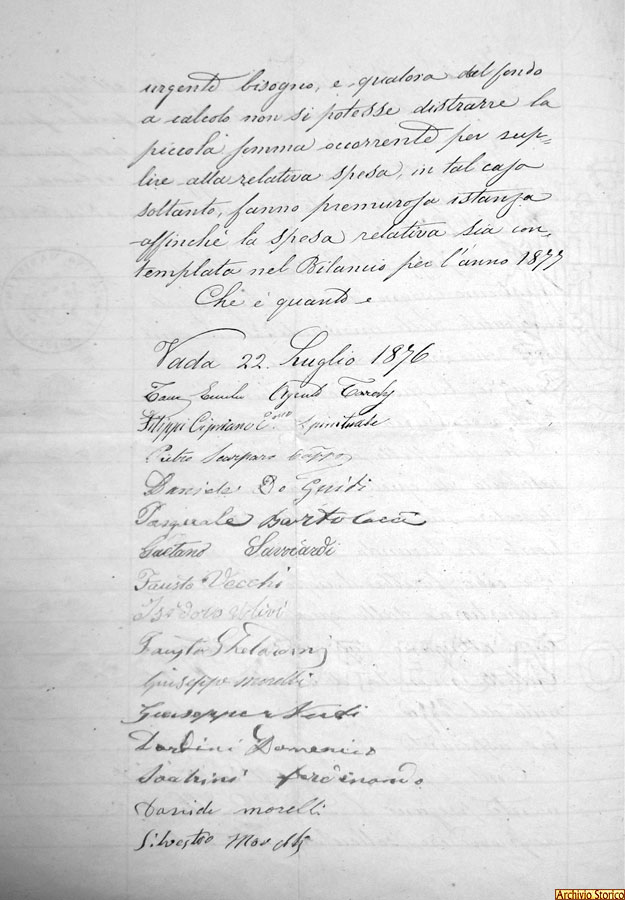 urgente bisogno, e qualora del fondo
a calcolo non si potesse distrarre la
piccola somma occorrente per sup-
lire alla relativa spesa, in tal caso
soltanto, fanno premurosa istanza
affinchè la spesa relativa sia con
templata nel Bilancio per l'anno 1877
Che è quanto e
Vada 22. Luglio 1876
Agente
Filippi Cipriano Spirituale
Pietro Scarparo
Daniele De Guidi
Pasquale Bartolacci
Gaetano
Fausto Vecchi
Isidoro Ulivi
Fausto
Giuseppe Morelli
Giuseppe Nudi
Dardini Domenico
Ferdinando
Davide morelli
Silvestro
Archivio Storico